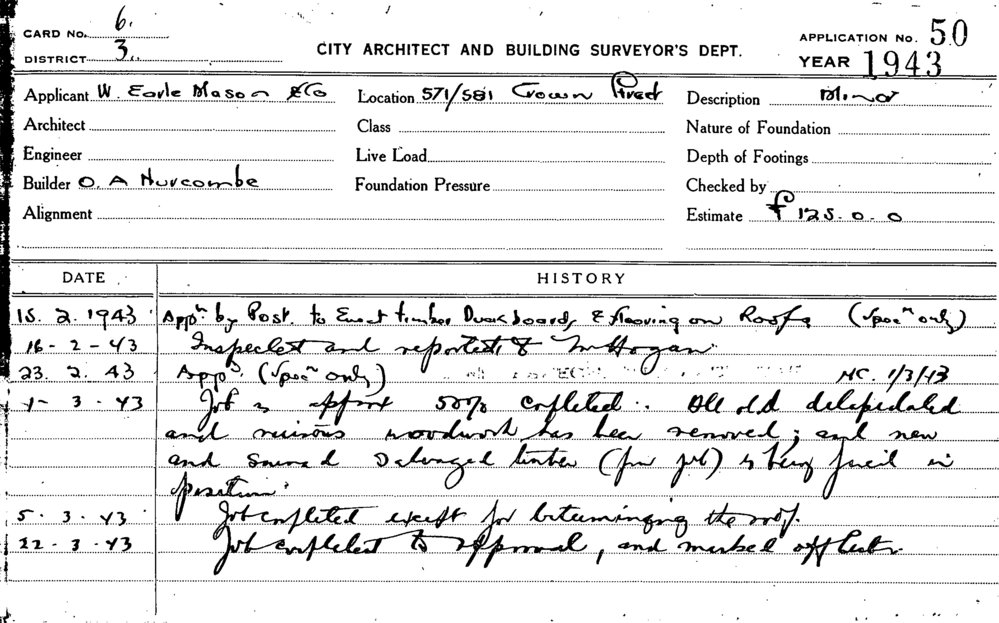 CARD No. 6.
DISTRICT 3.
CITY ARCHITECT AND BUILDING SURVEYOR'S DEPT.
APPLICATION No. 50
YEAR 1943
Applicant W. Earle Mason & Co
Location 571/581 Crown Street
Description Minor
Architect
Class
Nature of Foundation
Engineer
Live Load
Depth of Footings
Builder O. A Nurcombe
Foundation Pressure
Checked by
Alignment
Estimate £125.0.0
DATE HISTORY
15.2.1943 Appn. by Post. to Erect timber Duckboards & flooring on Roofs (Specn only)
16-2-43 Inspected and reported to Mr Hogan
23.2.43 Appd. (Specn only) 1/3/43
1-3-43 Job is approx 50% completed. All old delapidated
and ruinous woodwork has been removed; and new
and sound salvaged timber (for job) is being fixed in
position.
5.3.43 Job completed except for bituminizing the roof.
22-3-43 Job completed to approval, and marked off